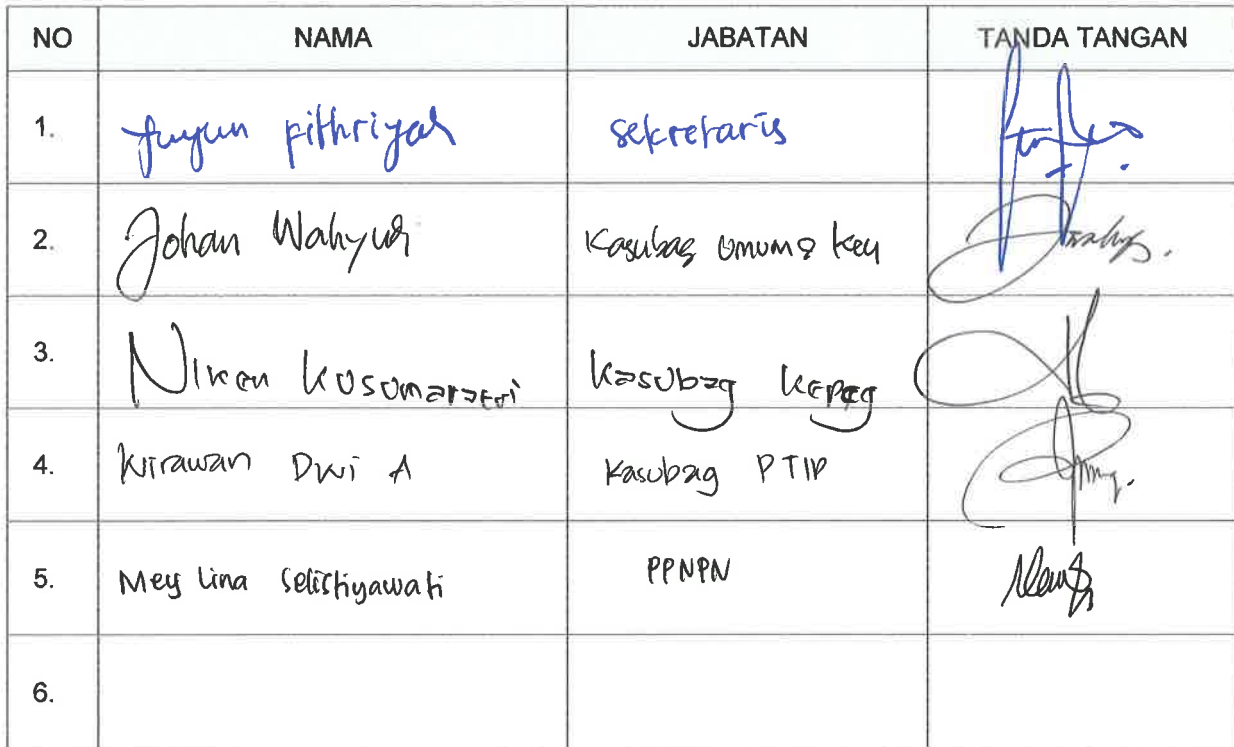 NO NAMA JABATAN TANDA TANGAN
1. Yuyun Fithriyah Sekretaris
2. Johan Wahyudi Kasubag Umum & Keu
3. Niken Kusumarastri Kasubag Kepeg
4. Wirawan Dwi A Kasubag PTIP
5. Mey Lina Selistiyawati PPNPN
6.